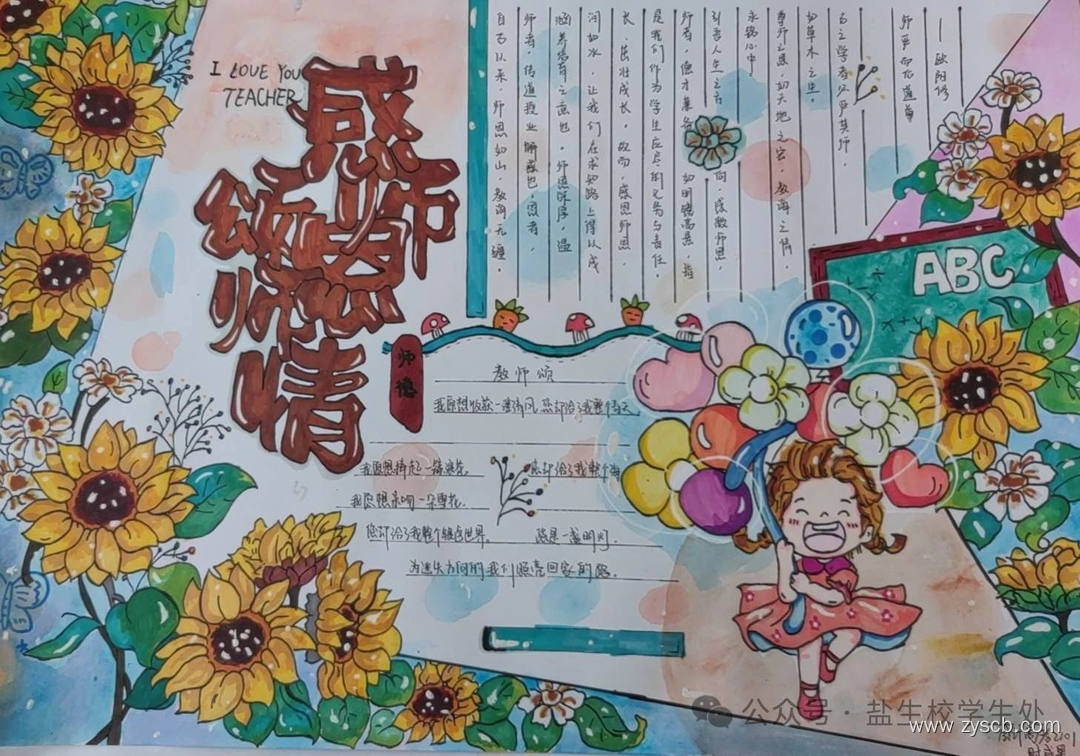 I LOVE YOU
TEACHER
感师恩
颂师情
自古以来，师恩如山，教诲无疆。
师者，传道授业解惑也。恩者，
涵养培育之益也。师恩深厚，温
润如水，让我们在求知路上得以成
长、茁壮成长。故而，感恩师恩
是我们作为学生应尽的义务与责任
师者，德才兼备，如明镜高悬，指
引着人生之方向。感激师恩，
永铭心中
尊师之恩，如天地之宏，教诲之情，
如草木之生。
古之学者必严其师，
师严而后道尊
——欧阳修
ABC
师德
教师颂
我愿想收获一缕清风，您却给了我整个春天
我愿想捧起一簇浪花，您却给了我整个海
我愿想亲吻一朵雪花，
您却给了我整个银色世界。 您是一盏明灯，
为迷失方向的我们照亮回家的路。
公众号·盐生校学生处
www.zyscb.com